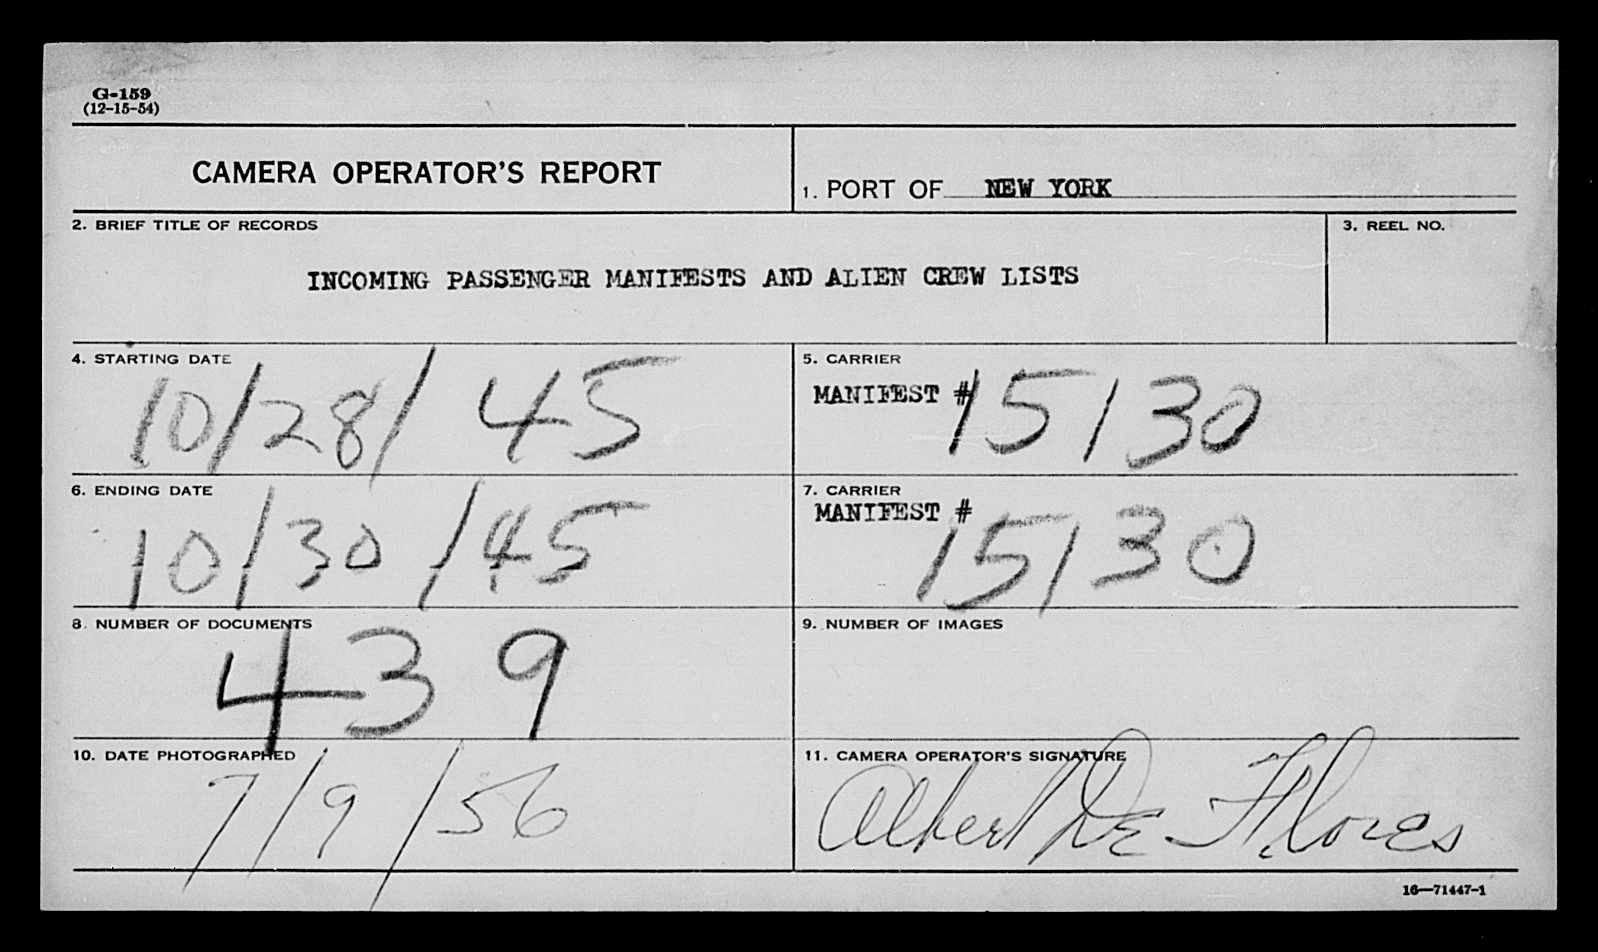 G-159
(12-15-54)
CAMERA OPERATOR'S REPORT
1. PORT OF NEW YORK
2. BRIEF TITLE OF RECORDS
INCOMING PASSENGER MANIFESTS AND ALIEN CREW LISTS
3. REEL NO.
4. STARTING DATE
10/28/45
5. CARRIER
MANIFEST # 15130
6. ENDING DATE
10/30/45
7. CARRIER
MANIFEST # 15130
8. NUMBER OF DOCUMENTS
439
9. NUMBER OF IMAGES
10. DATE PHOTOGRAPHED
7/9/56
11. CAMERA OPERATOR'S SIGNATURE
Albert De Flores
16—71447-1